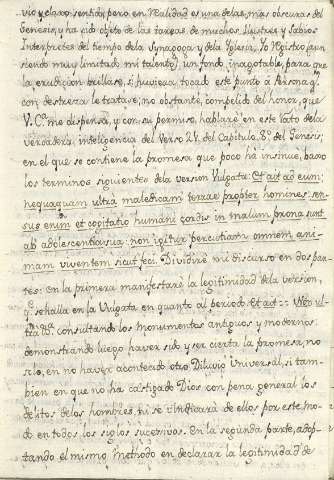 vio y claro sentido, pero en realidad es una de las mas obscuras del
Genesis, y ha sido objeto de las tareas de muchos Ilustres y Sabios
Interpretes del tiempo de la Synagoga y de la Iglesia, Yo registro (aun
siendo muy limitado mi talento) un fondo inagotable, para que
la erudicion brillase, si huviera tocado este punto à Persona q.e
con destreza le tratase, no obstante, compelido del honor, que
V. C.a me dispensa, y con su permiso, hablaré en este Teatro de la
verdadera inteligencia del Verso 21. del Capitulo 8.º del Genesis,
en el que se contiene la promesa que poco ha insinue, baxo
los terminos siguientes de la version Vulgata: Et ait ad eum:
nequaquam ultra maledicam terrae propter homines: sen-
sus enim et cogitatio humani cordis in malum prona sunt
ab adolescentia sua: non igitur percutiam omnem ani-
mam viventem sicut feci. Dividiré mi discurso en dos par-
tes: En la primera manifestaré la legitimidad de la version,
q.e se halla en la Vulgata en quanto al periodo Et ait :: Neq ul-
tra &. consultando los monumentos antiguos y modernos:
demonstrando luego haver sido y ser cierta la promesa, no
solo, en no haver acontecido otro Diluvio Universal, si tam-
bien en que no ha castigado Dios con pena general los
delitos de los hombres, ni se vindicará de ellos por este mo-
do en todos los siglos sucesivos. En la segunda parte, adop-
tando el mismo methodo en declarar la legitimidad de